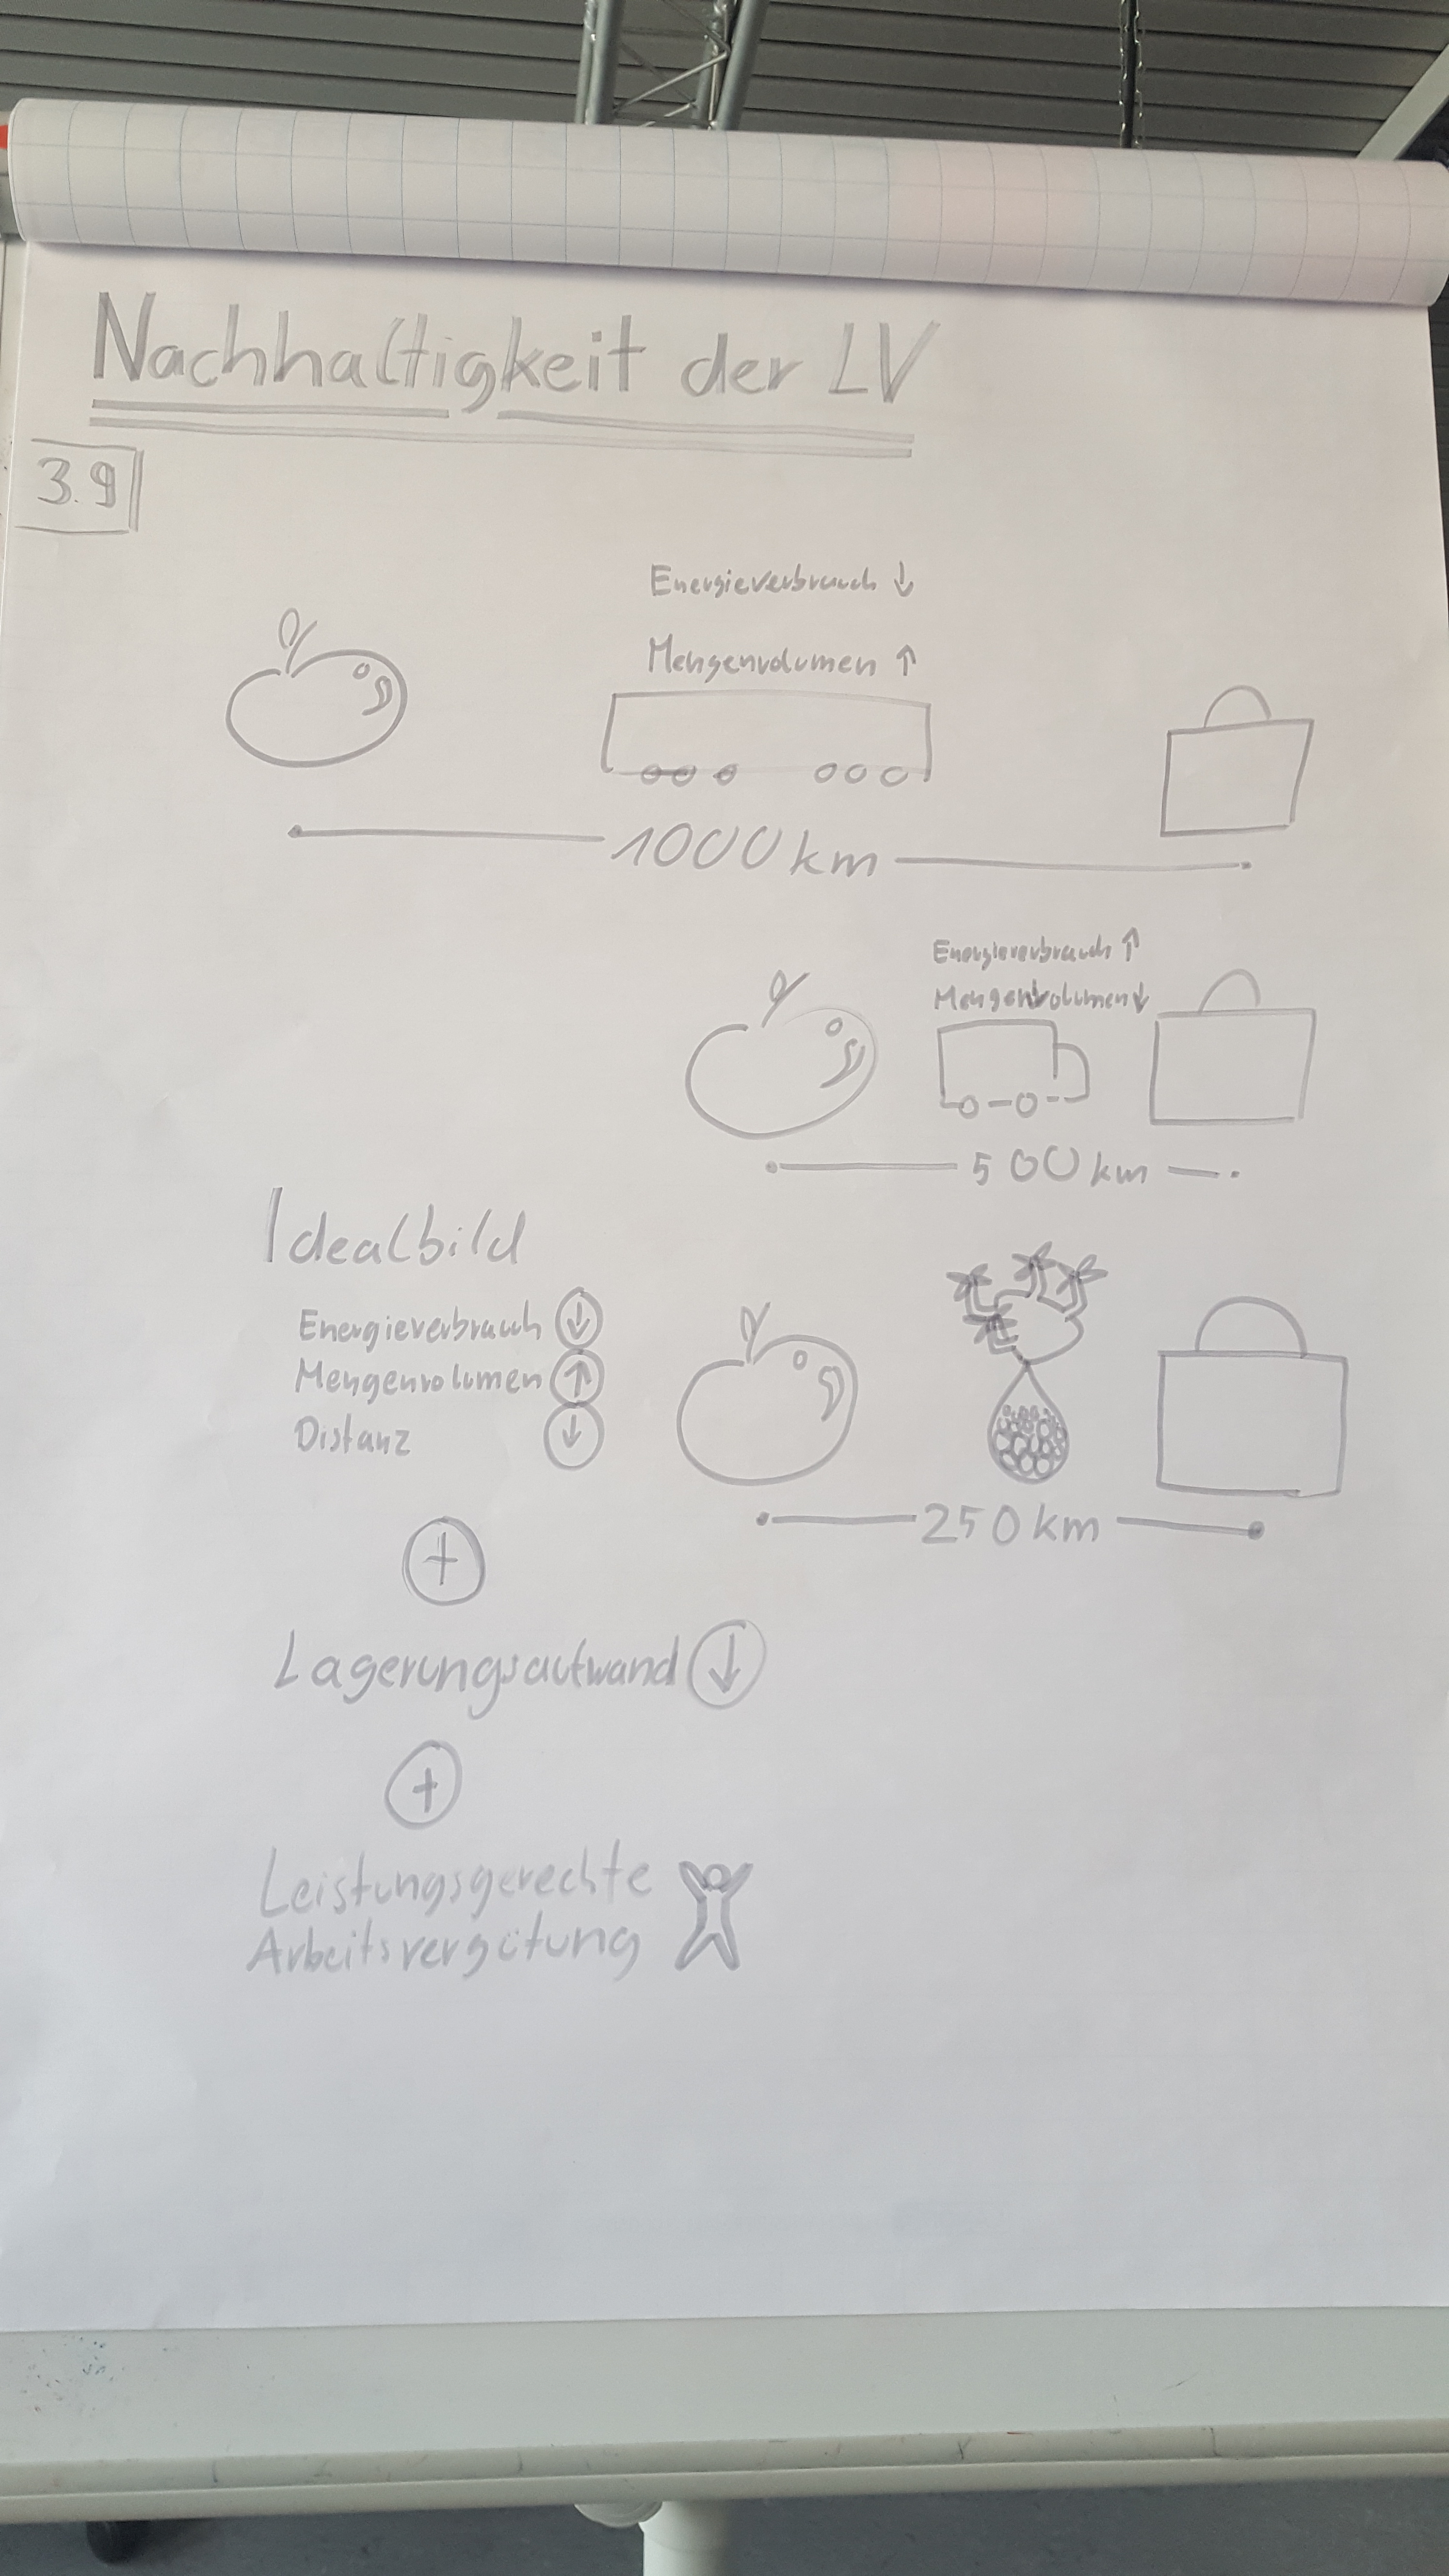 Nachhaltigkeit der LV
3.9
Energieverbrauch ↓
Mengenvolumen ↑
1000 km
Energieverbrauch ↑
Mengenvolumen ↓
500 km
Idealbild
Energieverbrauch ↓
Mengenvolumen ↑
Distanz ↓
250 km
+
Lagerungsaufwand ↓
+
Leistungsgerechte
Arbeitsvergütung